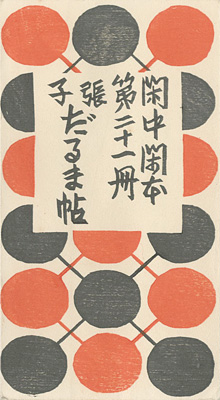 閑中閑本
第二十一冊
張子だるま帖